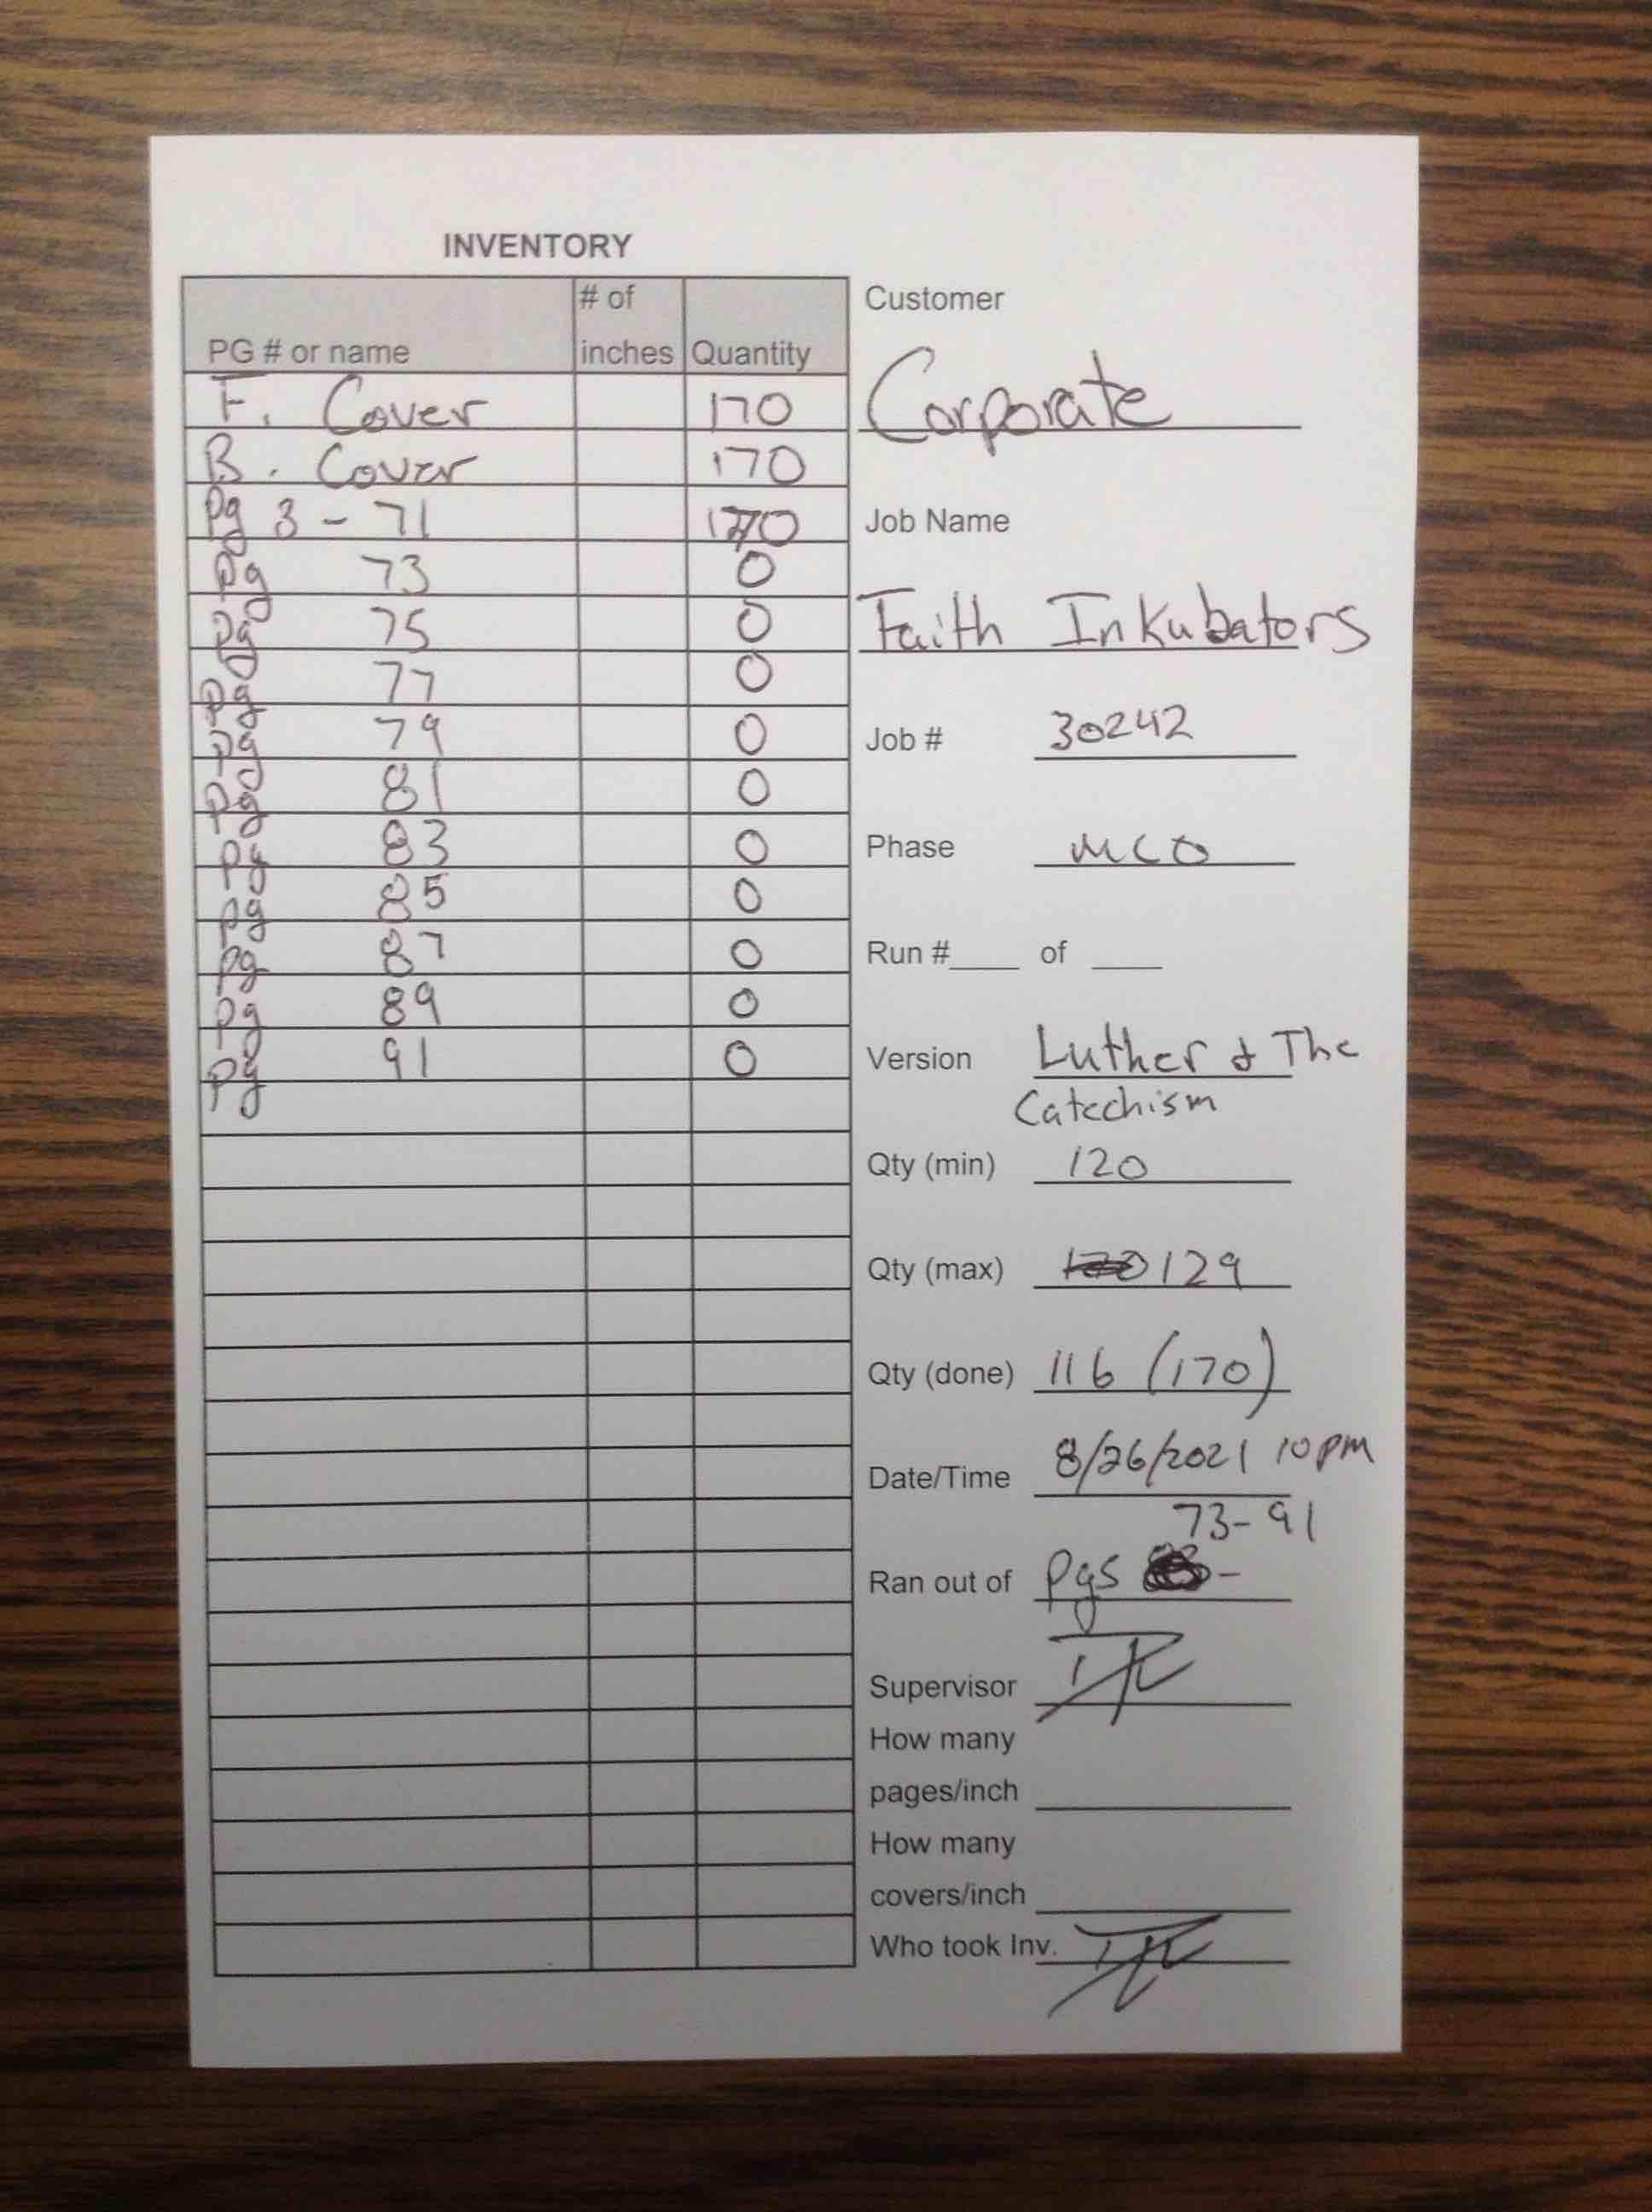 INVENTORY
PG # or name # of inches Quantity
F. Cover 170
B. Cover 170
Pg 3 - 71 170
Pg 73 0
Pg 75 0
Pg 77 0
Pg 79 0
Pg 81 0
Pg 83 0
Pg 85 0
Pg 87 0
Pg 89 0
Pg 91 0
Customer
Corporate
Job Name
Faith Inkubators
Job # 30242
Phase MCO
Run #____ of ____
Version Luther & The
Catechism
Qty (min) 120
Qty (max) 129
Qty (done) 116 (170)
Date/Time 8/26/2021 10pm
73-91
Ran out of Pgs -
Supervisor
How many
pages/inch
How many
covers/inch
Who took Inv.